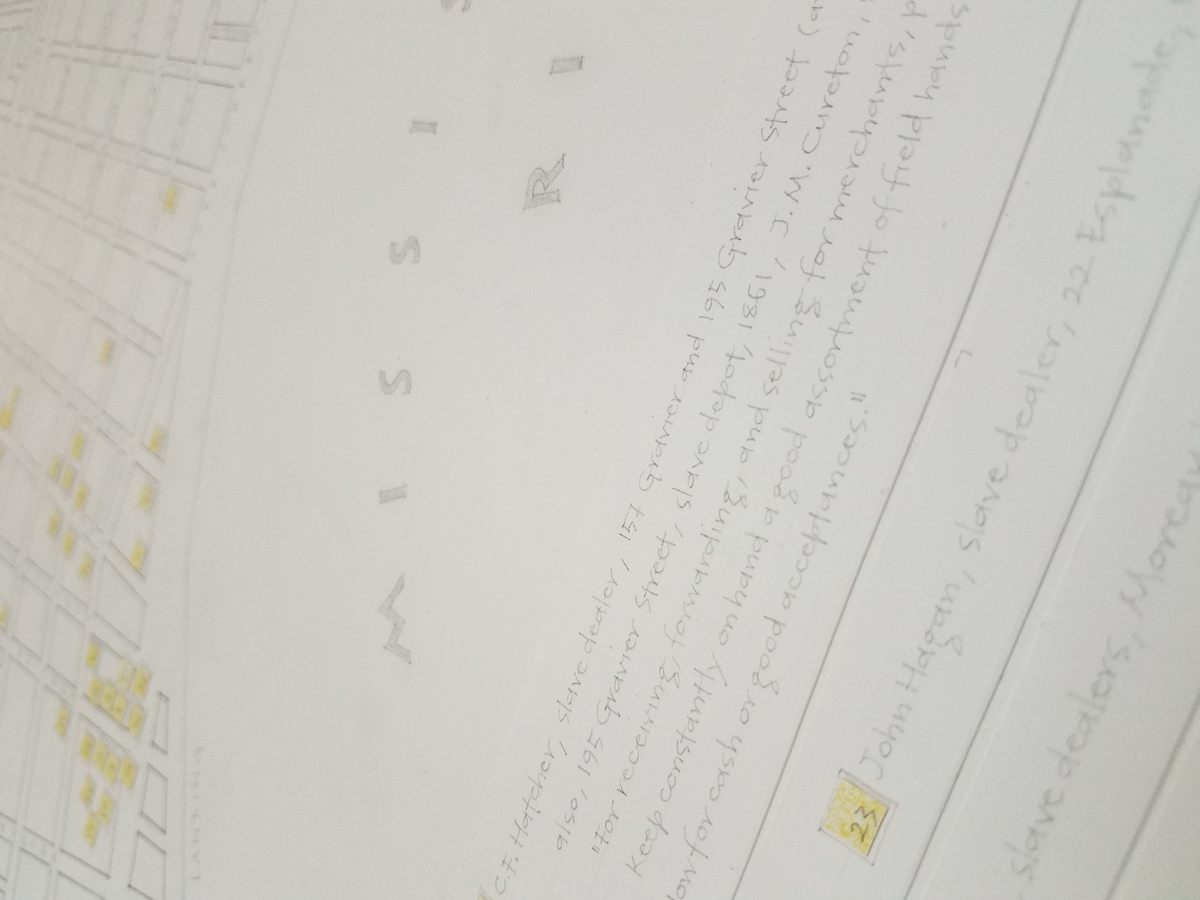 LANDING
MISSIS
RI
C.F. Hatcher, slave dealer, 157 Gravier and 195 Gravier Street
also, 195 Gravier Street, slave depot, 1861, J.M. Cureton,
"For receiving, forwarding, and selling for merchants,
Keep constantly on hand a good assortment of field hands
low for cash or good acceptances."
23 John Hagan, slave dealer, 22 Esplanade,
slave dealers, Moreau